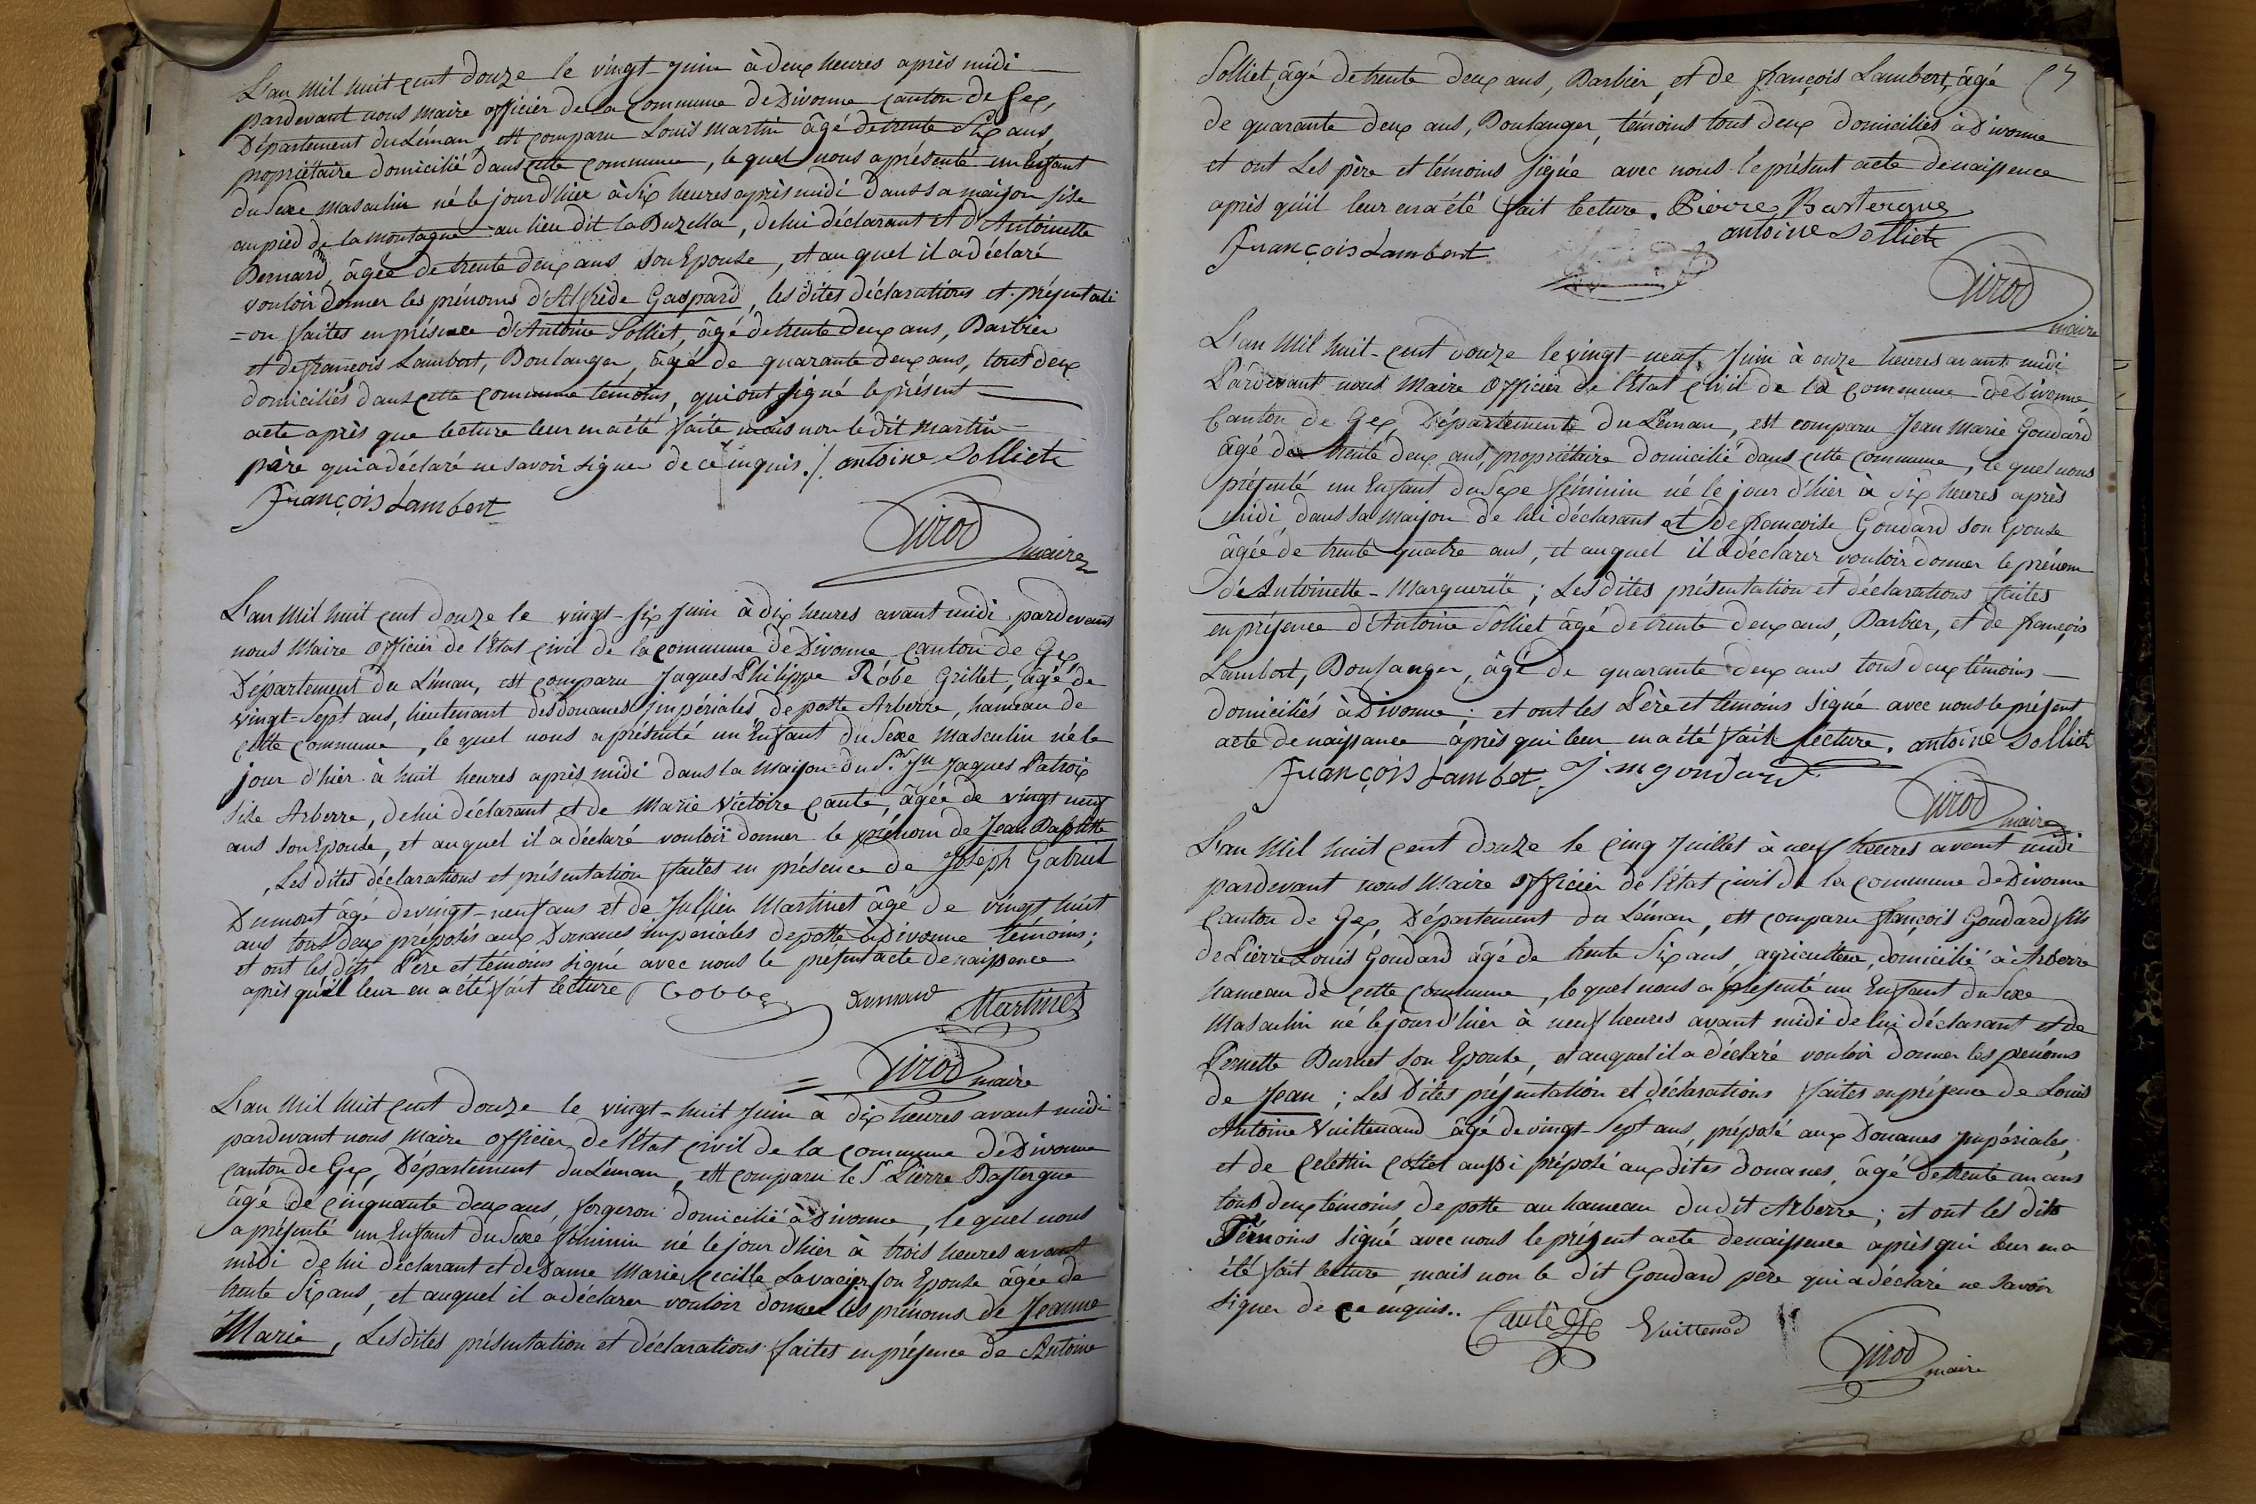 L'an mil huit cent douze le vingt-juin à deux heures après midi
pardevant nous maire officier de la Commune de Divonne canton de Gex,
Département du Léman, est comparu Louis Martin âgé de trente Six ans
propriétaire domicilié dans cette commune, le quel nous a présenté un Enfant
du Sexe masculin né le jour d'hier à Six heures après midi dans sa maison sise
au pied de la montagne au lieu dit la Buzella, de lui déclarant et d'Antoinette
Bernard, âgée de trente deux ans son Epouse, et au quel il a déclaré
vouloir donner les prénoms d'Alfrède Gaspard, les dites déclarations et présentati
=on faites en présence d'Antoine Solliet, âgé de trente deux ans, Barbier
et de françois Lambert, Boulanger, âgé de quarante deux ans, tout deux
domiciliés dans cette commune témoins, qui ont signé le présent
acte après que lecture leur en a été faite, mais non le dit Martin
père qui a déclaré ne savoir signer de ce inquis./. antoine Solliet
François Lambert
Girod maire
L'an mil huit cent douze le vingt-six juin à dix heures avant midi pardevant
nous Maire officier de l'état civil de la commune de Divonne canton de Gex
Département du Léman, est comparu Jaques Philippe Róbe Grillet, âgé de
vingt-Sept ans, lieutenant des douanes impériales de poste Arberre, hameau de
cette commune, le quel nous a présenté un Enfant du Sexe masculin né le
jour d'hier à huit heures après midi dans la maison du Sr. Jn Jaques Patroix
sise Arberre, de lui déclarant et de Marie Victoire Cauté, âgée de vingt neuf
ans son Epouse, et auquel il a déclaré vouloir donner le prénom de Jean Baptiste
, Les dites déclarations et présentation faites en présence de Joseph Gabriel
Dumont âgé de vingt-neuf ans et de Jullien Martinet âgé de vingt huit
ans tout deux préposés aux Douanes impériales de poste à Divonne témoins;
et ont les dits Père et témoins signé avec nous le présent acte de naissence
après qu'il leur en a été fait lecture Martinet
Girod maire
L'an mil huit cent douze le vingt-huit Juin à dix heures avant midi
pardevant nous Maire officier de l'Etat civil de la commune de Divonne
canton de Gex, Département du Léman, est comparu le Sr Pierre Bastergue
âgé de cinquante deux ans, forgeron domicilié à Divonne, le quel nous
a présenté un Enfant du Sexe féminin né le jour d'hier à trois heures avant
midi de lui déclarant et de Dame Marie Cecille Lavacier son Epouse âgée de
trente Six ans, et auquel il a déclarer vouloir donner les prénoms de Jeanne
Marie, Les dites présentation et déclarations faites en présence de Antoine
Solliet, âgé de trente deux ans, Barbier, et de françois Lambert, âgé
de quarante deux ans, Boulanger, témoins tous deux domiciliés à Divonne
et ont Les père et témoins signée avec nous le présent acte de naissence
après qu'il leur en a été fait lecture. Pierre Bastergue
antoine Solliet
François Lambert
Girod
maire
L'an Mil huit-cent douze le vingt-neuf Juin à onze heures avant midi
Pardevant nous Maire officier de l'Etat civil de la commune de Divonne,
Canton de Gex Département du Léman, est comparu Jean Marie Goudard
âgé de trente deux ans, propriétaire domicilié dans cette commune, le quel nous
présenté un Enfant du Sexe féminin né le jour d'hier à six heures après
midi, dans sa maison de lui déclarant et de françoise Goudard son Epouse
âgée de trente quatre ans, et auquel il a déclarer vouloir donner le prénom
de Antoinette-Marguerite; Les dites présentation et déclarations faites
en présence d'Antoine Solliet âgé de trente deux ans, Barbier, et de françois
Lambert, Boulanger, âgé de quarante deux ans tous deux témoins
domiciliés à Divonne; et ont les Père et témoins signé avec nous le présent
acte de naissance après qui leur en a été fait lecture. antoine Solliet
François Lambet. J m goudard
Girod maire
L'an Mil huit cent douze le cinq Juillet à neuf heures avant midi
pardevant nous Maire officier de l'état civil de la commune de Divonne
Canton de Gex, Département du Léman, est comparu françois Goudard fils
de Pierre Louis Goudard âgé de trente Six ans, agriculteur, domicilié à Arberre
hameau de cette commune, le quel nous a présenté un Enfant du Sexe
Masculin né le jour d'hier à neuf heures avant midi de lui déclarant et de
Pernette Burnet son Epouse, et auquel il a déclaré vouloir donner les prénoms
de Jean; Les Dites présentation et déclarations faites en présence de Louis
Antoine Vuittenaud âgé de vingt-Sept ans, préposé aux Douanes impériales,
et de Celestin Cattet aussi préposé aux dites douanes, âgé de trente un ans
tous deux témoins de poste au hameau du dit Arberre; et ont les dits
Témoins signé avec nous le présent acte de naissence après qui leur en a
été fait lecture mais non le dit Goudard père qui a déclaré ne savoir
signer de ce enquis..
Vuittenod
Girod
maire